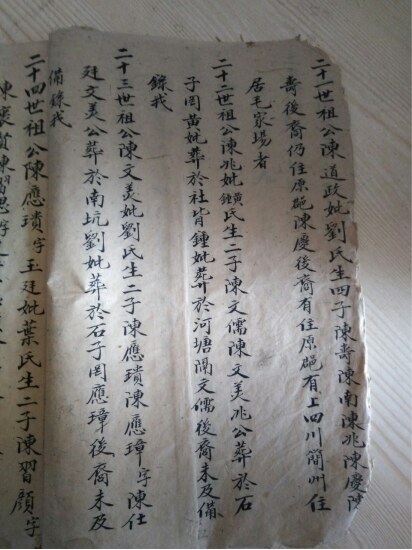 二十一世祖公陳道政妣劉氏生四子陳壽陳南陳兆陳慶陳
壽後裔仍住原䣕陳慶後裔有住原䣕有上四川簡州住
居毛家場者
二十二世祖公陳兆妣黄鍾氏生二子陳文儒陳文美兆公葬於石
子岡黄妣葬於社背鍾妣葬於河塘開文儒後裔未及備
錄哉
二十三世祖公陳文美妣劉氏生二子陳應瑣陳應璋字陳仕
廷文美公葬於南坑劉妣葬於石子岡應璋後裔未及
備錄哉
二十四世祖公陳應瑣字玉廷妣葉氏生二子陳習顏字